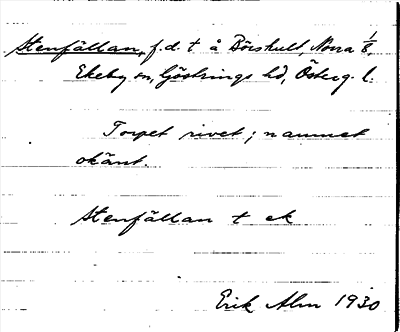 Stenfällan, f.d. t å Börshult, Norra 1/8,
Ekeby sn, Göstrings hd, Österg. l.
Torpet rivet; namnet
okänt.
Stenfällan t ek
Erik Alm 1930